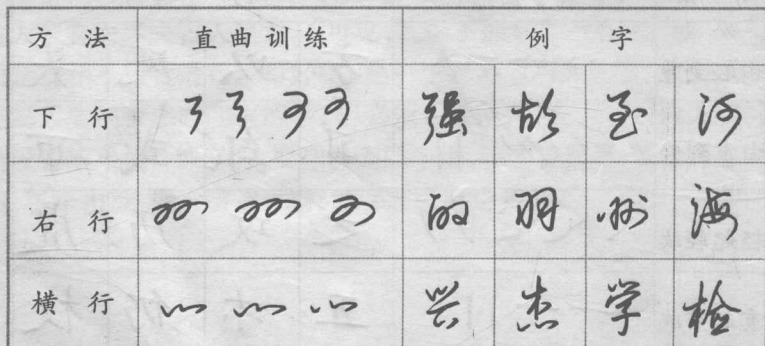 方法 直曲训练 例字
下行 强 故 至 河
右行 的 羽 州 海
横行 兴 杰 学 检